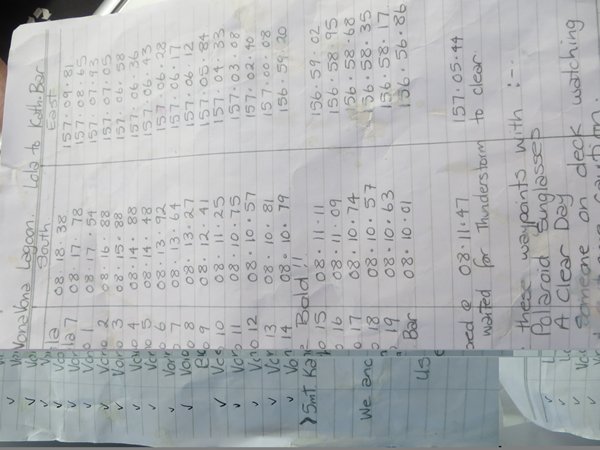 VonaVona Lagoon. Lola to Kath. Bar
South East
la 08.18.38 157.09.81
la 7 08.17.78 157.08.65
Vono 1 08.17.54 157.07.93
Vono 2 08.16.88 157.07.05
Vono 3 08.15.88 157.06.58
Vono 4 08.14.88 157.06.36
Vono 5 08.14.48 157.06.43
Vono 6 08.13.92 157.06.28
Vono 7 08.13.64 157.06.17
Vono 8 08.13.27 157.06.12
9 08.12.41 157.05.84
10 08.11.25 157.04.33
Vono 11 08.10.75 157.03.08
Vono 12 08.10.57 157.02.40
13 08.10.81 157.00.08
14 08.10.79 156.59.20
>5mt Ka Bold!!
15 08.11.11 156.59.02
16 08.11.09 156.58.95
17 08.10.74 156.58.68
18 08.10.57 156.58.35
19 08.10.63 156.58.17
Bar 08.10.01 156.56.86
We anc ed @ 08.11.47 157.05.44
waited for Thunderstorm to clear
Use these waypoints with :-
Polaroid Sunglasses
A Clear Day
Someone on deck watching
caution